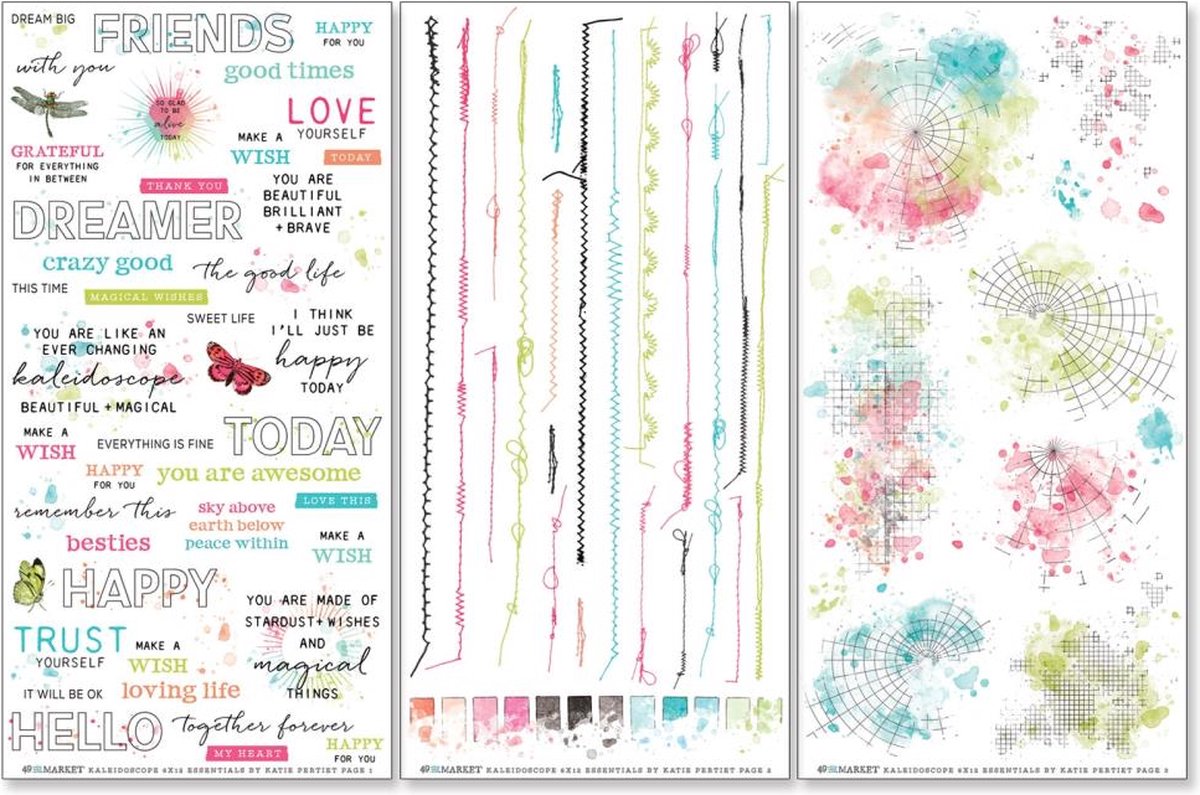 DREAM BIG
FRIENDS
HAPPY
FOR YOU
with you
good times
SO GLAD
TO BE
alive
TODAY
LOVE
YOURSELF
MAKE A
WISH
TODAY
GRATEFUL
FOR EVERYTHING
IN BETWEEN
THANK YOU
YOU ARE
BEAUTIFUL
BRILLIANT
+ BRAVE
DREAMER
crazy good
the good life
THIS TIME
MAGICAL WISHES
SWEET LIFE
I THINK
I'LL JUST BE
happy
TODAY
YOU ARE LIKE AN
EVER CHANGING
kaleidoscope
BEAUTIFUL + MAGICAL
MAKE A
WISH
EVERYTHING IS FINE
TODAY
HAPPY
FOR YOU
you are awesome
LOVE THIS
remember this
sky above
earth below
peace within
besties
MAKE A
WISH
HAPPY
YOU ARE MADE OF
STARDUST + WISHES
AND
magical
THINGS
TRUST
YOURSELF
MAKE A
WISH
IT WILL BE OK
loving life
HELLO
together forever
MY HEART
HAPPY
FOR YOU
49 AND MARKET KALEIDOSCOPE 6X12 ESSENTIALS BY KATIE PERTIET PAGE 1
49 AND MARKET KALEIDOSCOPE 6X12 ESSENTIALS BY KATIE PERTIET PAGE 2
49 AND MARKET KALEIDOSCOPE 6X12 ESSENTIALS BY KATIE PERTIET PAGE 3